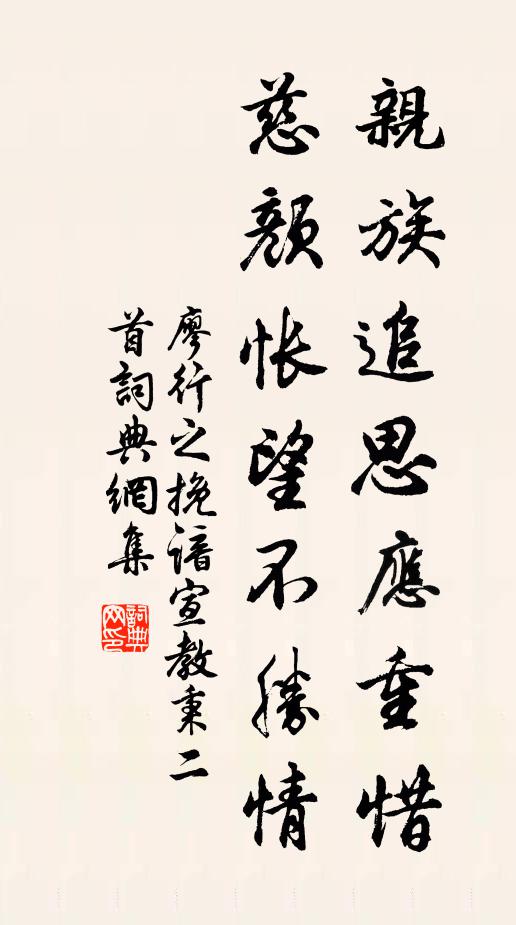 親族追思應重惜
慈顔悵望不勝情
廖行之挽諳宣教秉二
首詞典網集
詞典網印